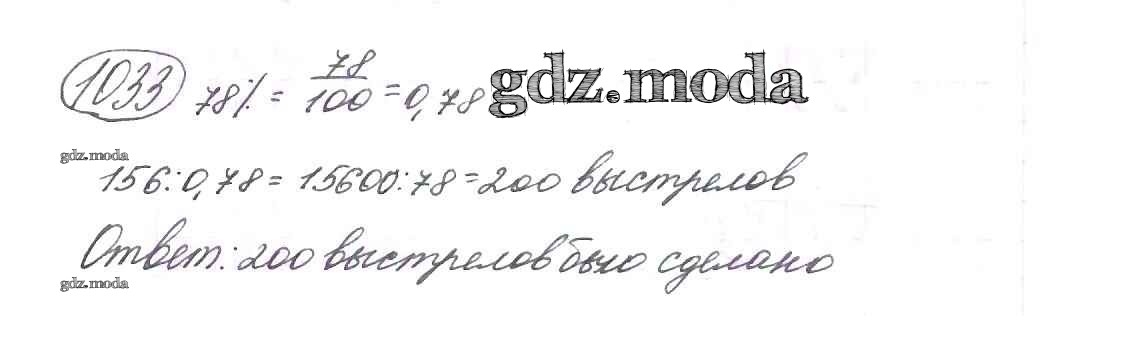 1033 78% = 78/100 = 0,78 gdz.moda
gdz.moda
156:0,78 = 15600:78 = 200 выстрелов
Ответ: 200 выстрелов было сделано
gdz.moda